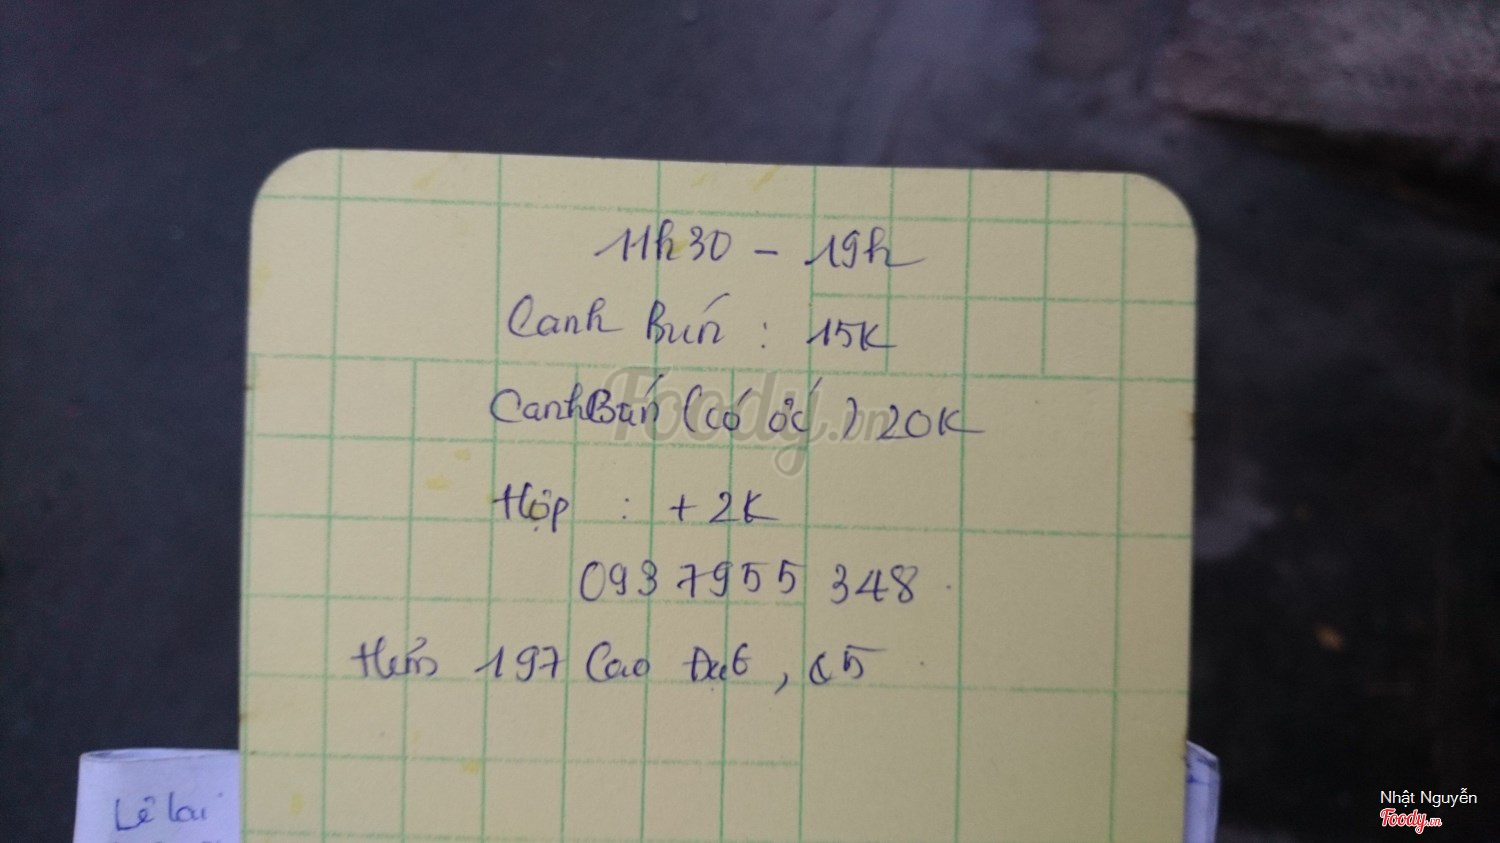 11h30 - 19h
Canh Bún : 15K
Canh Bún (có ốc) 20K
Hộp : + 2K
0937955 348.
Hẻm 197 Cao Đạt, Q5.
Lê Lai
Foody.vn
Nhật Nguyễn
Foody.vn